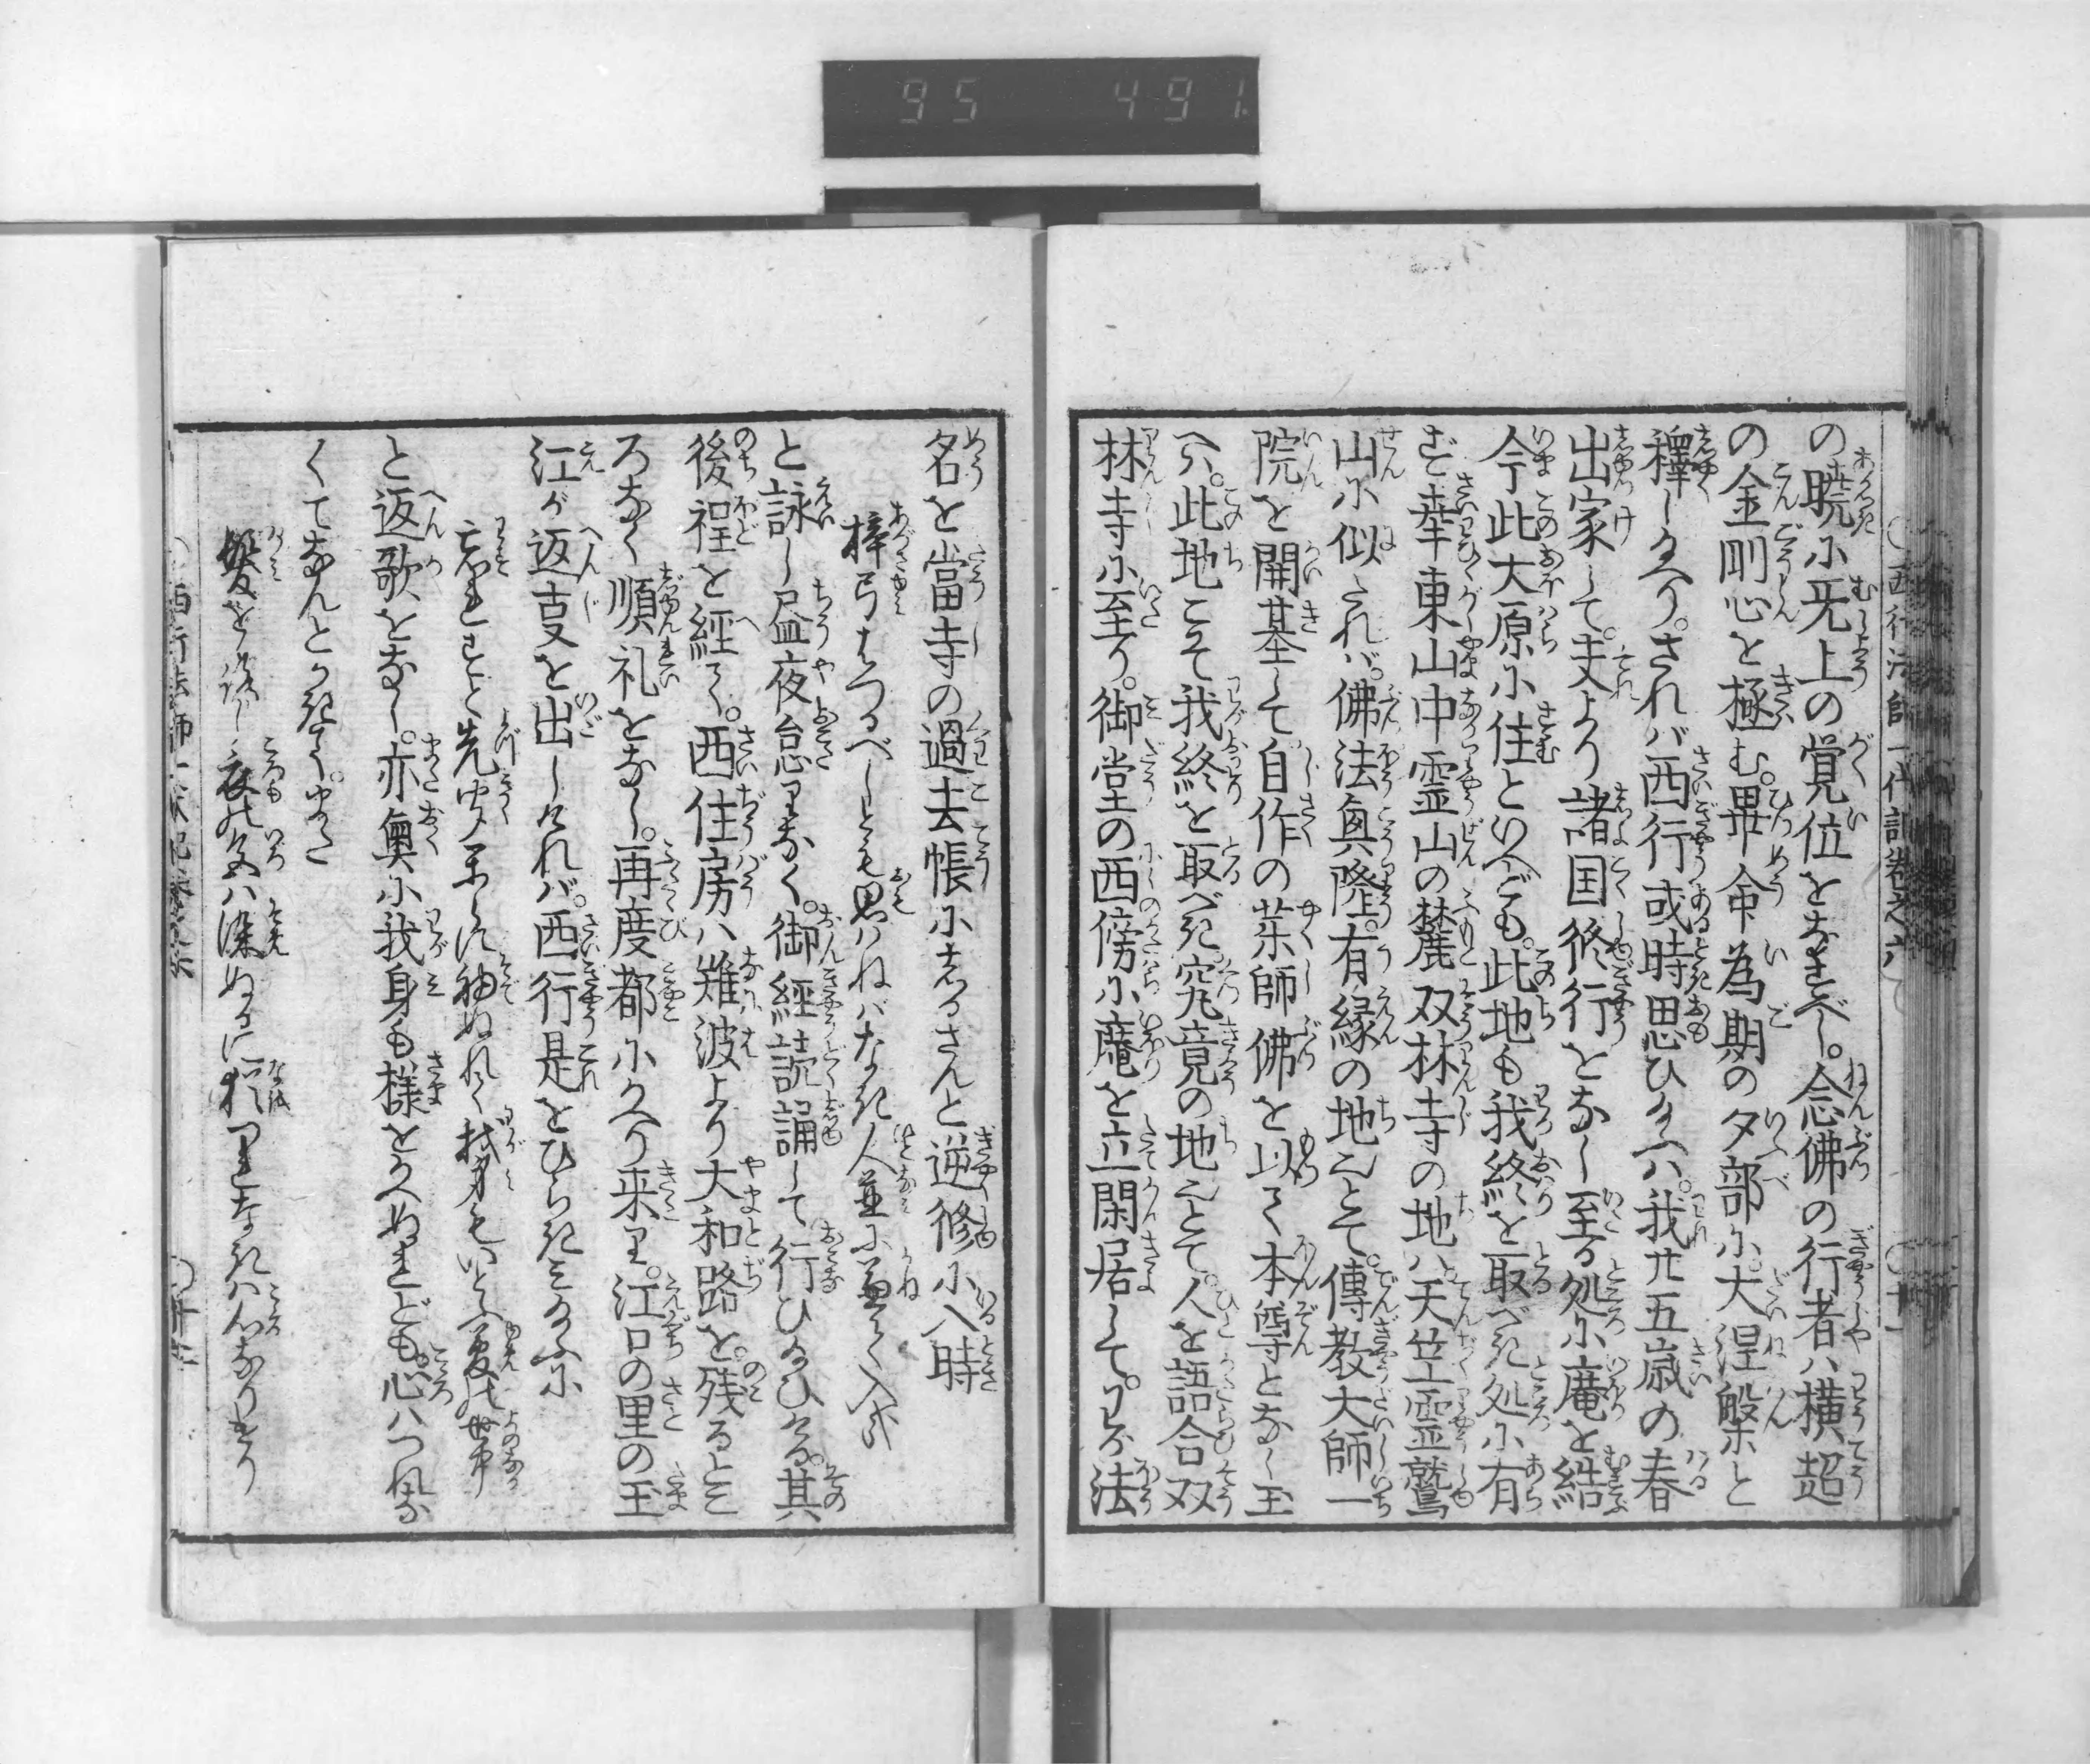 95 491
の暁に无上の覚位をなすべし。念佛の行者ハ横超
の金剛心を極む。畢命為期の夕部に。大涅槃と
釋し給へり。されバ西行或時思ひ給ハ。我廿五歳の春
出家して。夫より諸国修行をなし至る処に庵を結
今此大原に住といへども。此地も我終を取べき処に有
ず幸東山中霊山の麓双林寺の地ハ。天竺霊鷲
山に似たれバ。佛法興隆。有縁の地也とて。傳教大師一
院を開基して自作の茶師佛を以て本尊となし玉
へバ。此地こそ我終を取べき。究竟の地也とて。人を語合双
林寺に至り。御堂の西傍に庵を立閑居して。わが法
名を當寺の過去帳にしるさんと逆修に入時
梓弓はづるべしとも思ハねバなき人並に兼て入哉
と詠し昼夜怠りなく。御經読誦して行ひ給ひける。其
後程を經て。西住房ハ難波より大和路を。残るとこ
ろなく順礼をなし。再度都にかへり来り。江口の里の玉
江が返事を出しけれバ。西行是をひらき見給ふに
忘れずと先聞からに袖ぬれて我身もいとふ夏の世中
と返歌をなし。亦奥に我身も様をかへぬれども。心ハつれな
くてなんとかきて。また
髪をおろし衣の色ハ染ぬるに猶つれなきハ心なりけり
西行法師一代記巻之六